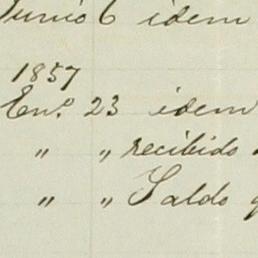 Junio 6 idem
1857
En.º 23 idem
" " recibido
" " Saldo